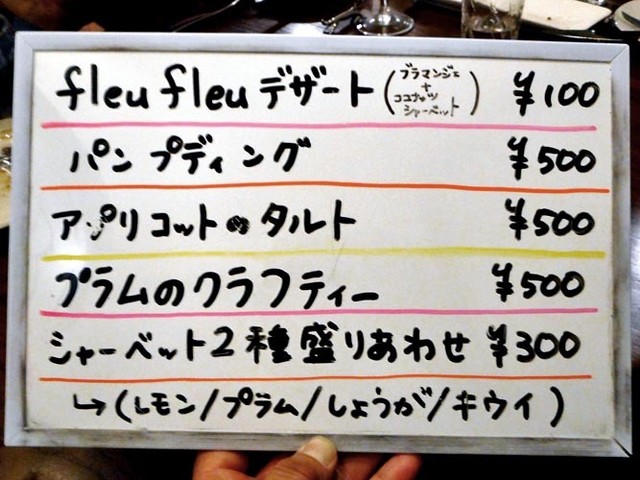 fleu fleu デザート (ブラマンジェ + ココナッツ シャーベット) ¥100
パン プディング ¥500
アプリコットのタルト ¥500
プラムのクラフティー ¥500
シャーベット2種盛りあわせ ¥300
↳(レモン/プラム/しょうが/キウイ)